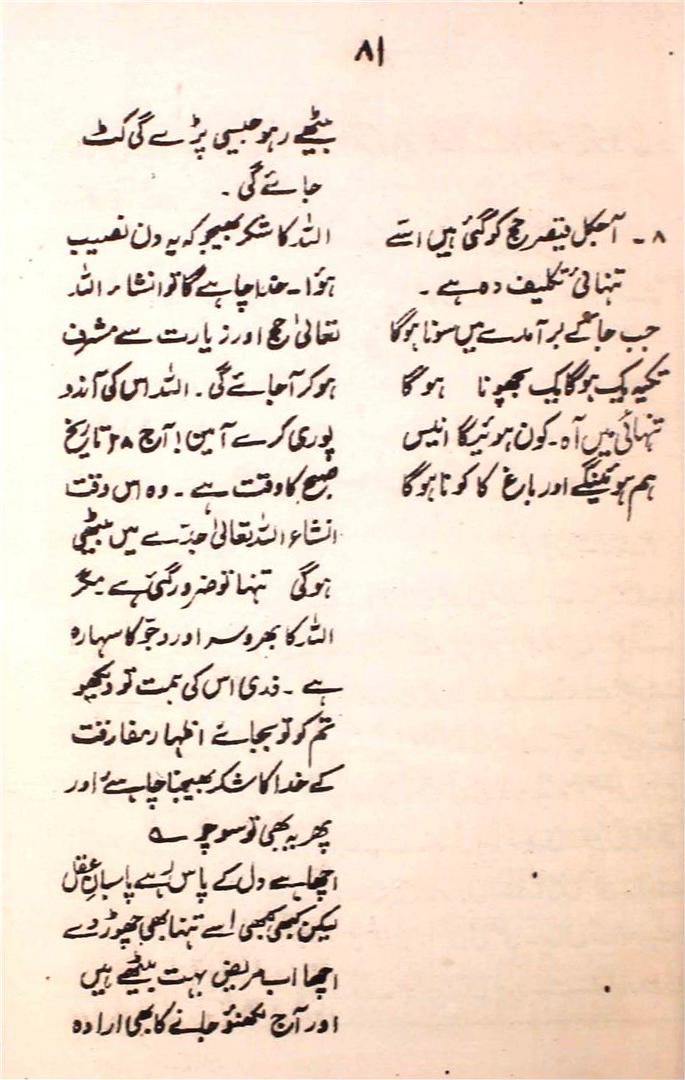 ۸۱
۸۔ آجکل قیصر حج کو گئی ہیں اسلئے
تنہائی تکلیف دہ ہے۔
جب جاکے برآمدے میں سونا ہوگا
تکیہ یک ہوگا یک بچھونا ہوگا
تنہائی میں آہ۔ کون ہوئیگا انیس
ہم ہوئینگے اور باغ کا کونا ہوگا
بیٹھے رہو جیسی پڑے گی کٹ
جائے گی۔
اللہ کا شکر بھیجو کہ یہ دن نصیب
ہوا۔ خدا چاہے گا تو انشاء اللہ
تعالیٰ حج اور زیارت سے مشرف
ہوکر آجائے گی۔ اللہ اس کی آرزو
پوری کرے آمین! آج ۲۸ تاریخ
صبح کا وقت ہے۔ وہ اس وقت
انشاء اللہ تعالیٰ جدّے میں بیٹھی
ہوگی تنہا تو ضرور گئی ہے مگر
اللہ کا بھروسہ اور وجّو کا سہارہ
ہے۔ فدی اس کی ہمت تو دیکھیو
تم کو تو بجائے اظہار مفارقت
کے خدا کا شکر بھیجنا چاہئے اور
پھر یہ بھی تو سوچو ؎
اچھا ہے دل کے پاس رہے پاسبانِ عقل
لیکن کبھی کبھی اسے تنہا بھی چھوڑ دے
اچھا اب مریض بہت بیٹھے ہیں
اور آج لکھنؤ جانے کا بھی ارادہ